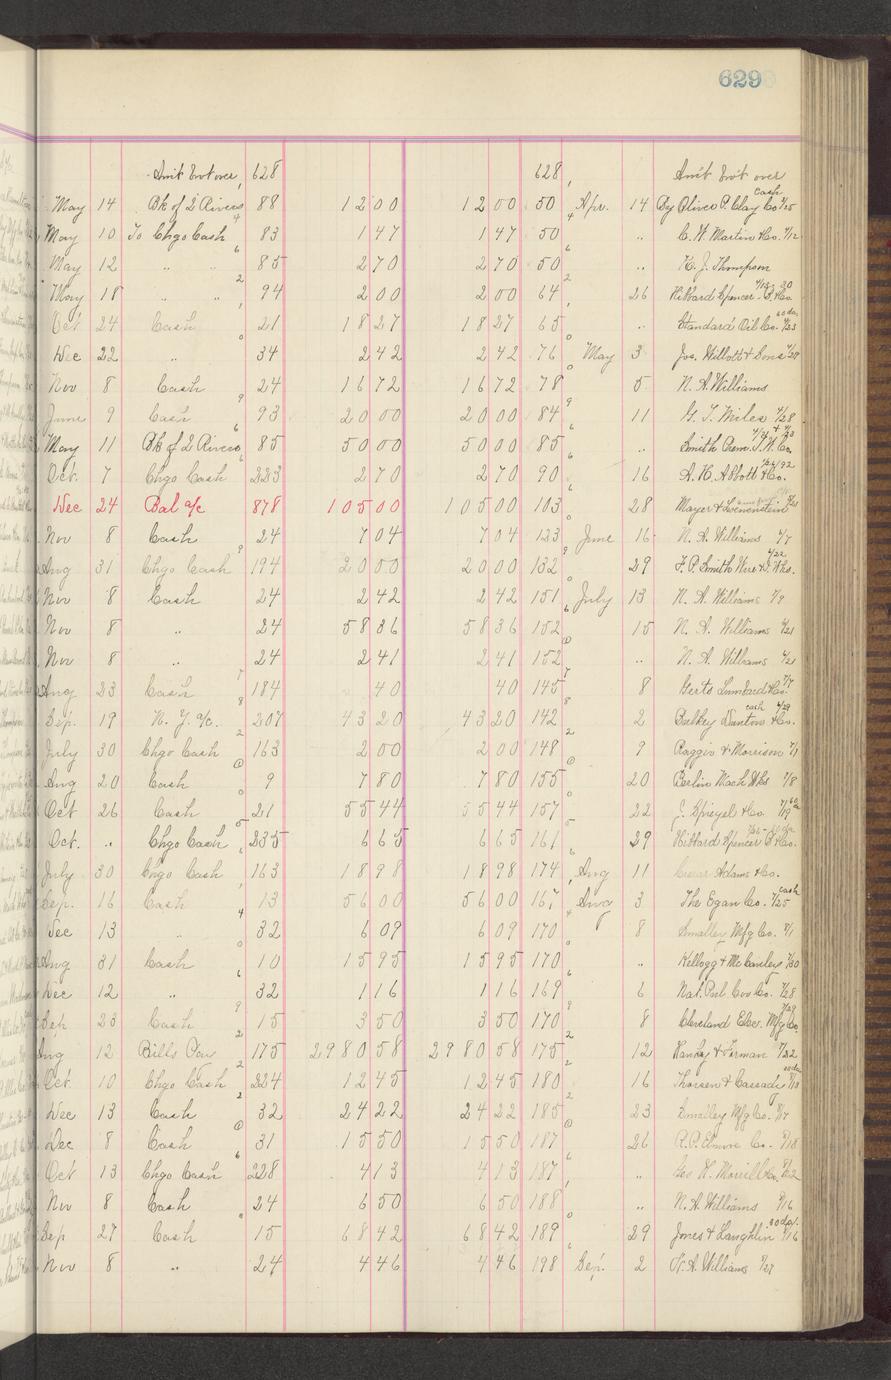 629
Am't bro't over, 628 628, Am't bro't over
May 14 Bk of 2 Rivers 88 12 00 12 00 50 Apr. 14 By Oliver P. Clay Co cash
May 10 To Chgo Cash 83 1 47 1 47 50 " C. W. Martin & Co. 4/12
May 12 " " 85 2 70 2 70 50 " H. J. Thompson
May 18 " " 94 2 00 2 00 64 26 Hibbard Spencer B. & Co.
Oct 24 Cash 21 18 27 18 27 65 " Standard Oil Co. 60 da
Dec 22 " 34 2 42 2 42 76 May 3 Jos. Willott & Sons
Nov 8 Cash 24 16 72 16 72 78 5 N. A. Williams
June 9 Cash 93 20 00 20 00 84 11 G. T. Miles 4/28
May 11 Bk of 2 Rivers 85 50 00 50 00 85 " Smith Prem. T. W. Co.
Oct. 7 Chgo Cash 223 2 70 2 70 90 16 A. H. Abbott & Co.
Dec 24 Bal a/c 878 105 00 105 00 103 28 Mayer & Loewenstein
Nov 8 Cash 24 7 04 7 04 123 June 16 N. A. Williams 4/7
Aug 31 Chgo Cash 194 20 00 20 00 132 29 F. P. Smith Wire & I. Wks.
Nov 8 Cash 24 2 42 2 42 151 July 13 N. A. Williams 7/9
Nov 8 " 24 58 36 58 36 152 15 N. A. Williams 6/21
Nov 8 " 24 2 41 2 41 152 " N. A. Williams 6/21
Aug 23 Cash 184 40 40 145 8 Gerts Lumbard & Co. 7/7
Sep. 19 N. Y. a/c. 207 43 20 43 20 142 2 Bulkey Dunton & Co. cash
July 30 Chgo Cash 163 2 00 2 00 148 9 Raggio & Morrison 7/1
Aug 20 Cash 9 7 80 7 80 155 20 Berlin Mach Wks 7/8
Oct 26 Cash 21 55 44 55 44 157 22 J. Spiegel & Co. 7/19
Oct. " Chgo Cash 235 6 65 6 65 161 29 Hibbard Spencer B & Co.
July 30 Chgo Cash 163 18 98 18 98 174 Aug 11 Adams & Co.
Sep. 16 Cash 13 56 00 56 00 167 Aug 3 The Egan Co. 7/25 cash
Dec 13 " 32 6 09 6 09 170 8 Smalley Mfg Co. 8/1
Aug 31 Cash 10 15 95 15 95 170 " Kellogg & McCauley 7/30
Dec 12 " 32 1 16 1 16 169 6 Nat. Co. 7/28
Sep 23 Cash 15 3 50 3 50 170 8 Cleveland Elec. Mfg Co. 7/29
Aug 12 Bills Pay 175 2980 58 2980 58 175 12 Hanley & Forman 7/22
Oct. 10 Chgo Cash 224 12 45 12 45 180 16 Thorsen & Cassady
Dec 13 Cash 32 24 22 24 22 185 23 Smalley Mfg Co. 8/17
Dec 8 Cash 31 15 50 15 50 187 26 R. P. Elmore Co. 8/18
Oct 13 Chgo Cash 228 4 13 4 13 187 " Geo H. Morrill Co. 8/22
Nov 8 Cash 24 6 50 6 50 188 " N. A. Williams 8/16
Sep 27 Cash 15 68 42 68 42 189 29 Jones & Laughlin 8/16 30 da/.
Nov 8 " 24 4 46 4 46 198 Sep. 2 N. A. Williams 8/27